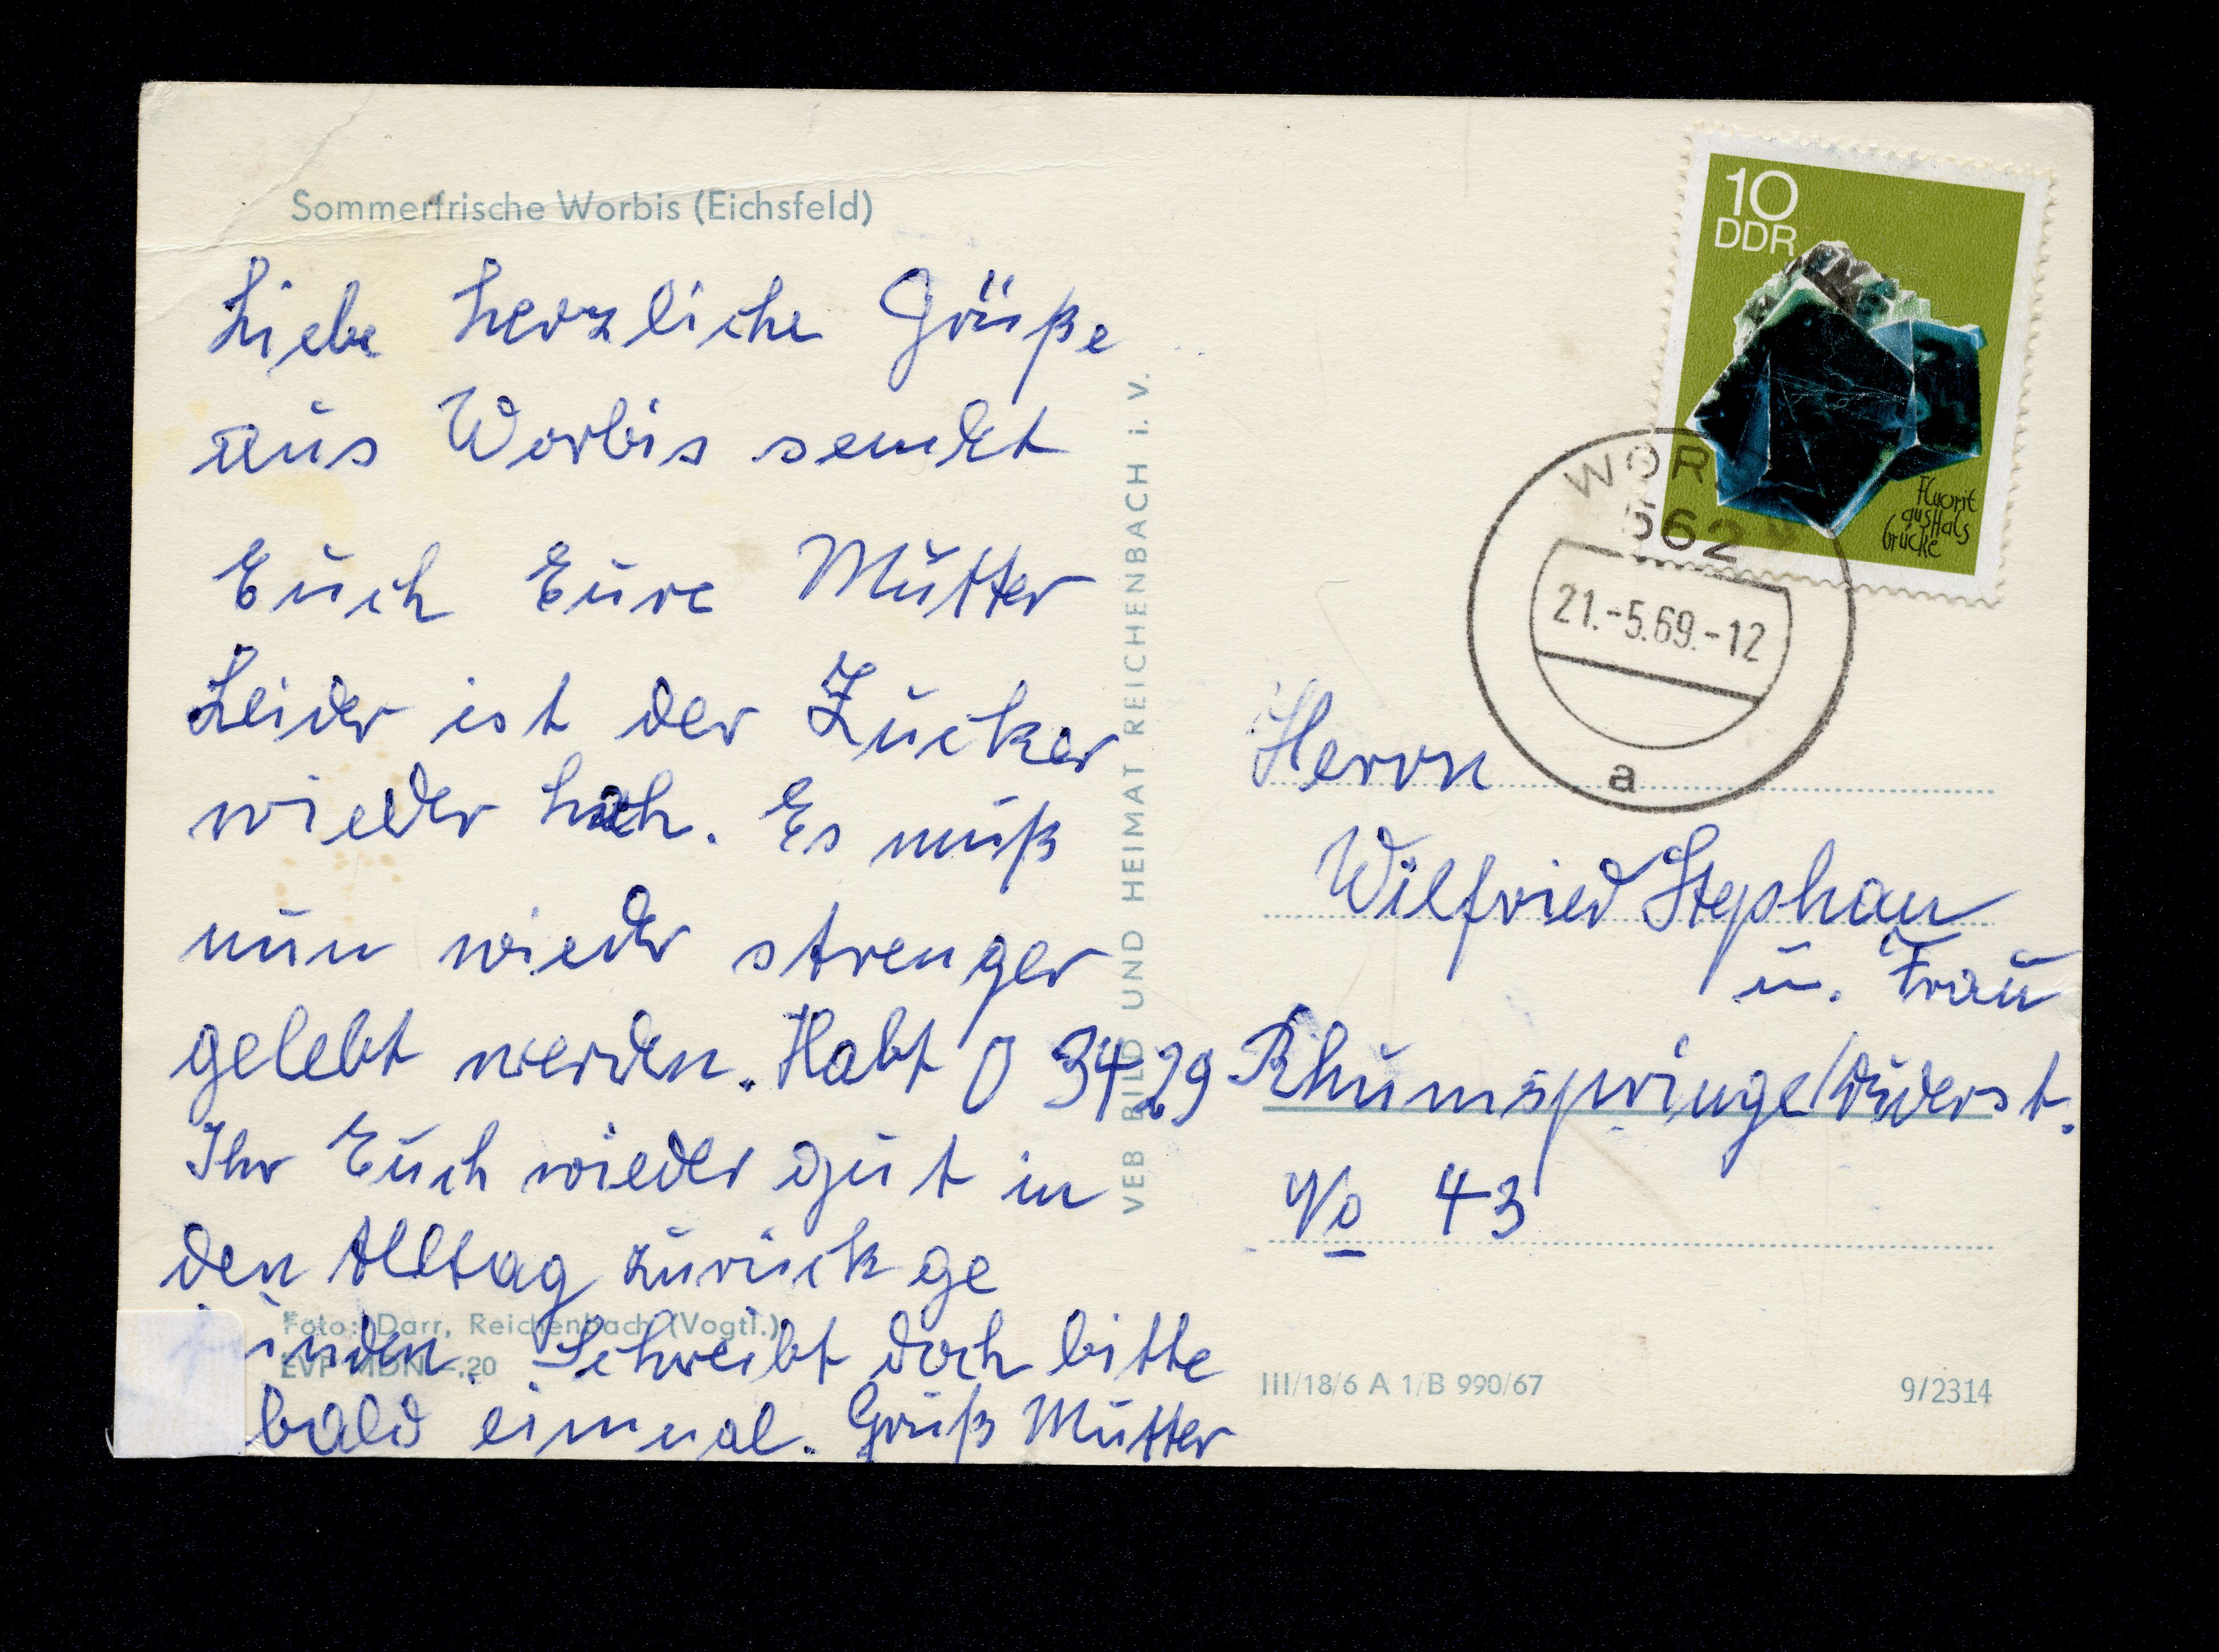 Sommerfrische Worbis (Eichsfeld)
Liebe herzliche Grüße
aus Worbis sendet
Euch Eure Mutter
Leider ist der Zucker
wieder hoch. Es muß
nun wieder strenger
gelebt werden. Habt
Ihr Euch wieder gut in
den Alltag zurück ge
funden. Schreibt doch bitte
bald einmal. Gruß Mutter
Foto: Darr, Reichenbach (Vogtl.)
EVP MDN –,20
VEB BILD UND HEIMAT REICHENBACH i. V.
10
DDR
Fluorit
aus Hals
brücke
WOR
562
21.-5.69.-12
a
Herrn
Wilfried Stephan
u. Frau
3429 Rhumspringe/Duderst.
No 43
III/18/6 A 1/B 990/67
9/2314